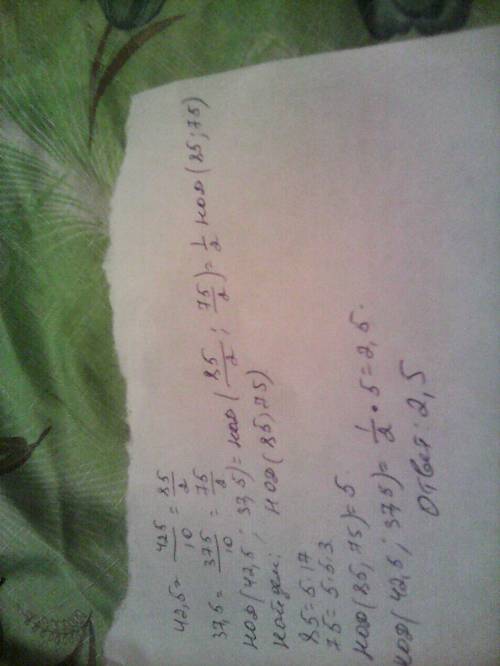 42,5 = 425/10 = 85/2
37,5 = 375/10 = 75/2
НОД(42,5; 37,5) = НОД(85/2; 75/2) = 1/2 НОД(85; 75)
Найдем: НОД(85; 75)
85 = 5·17
75 = 5·5·3
НОД(85, 75) = 5.
НОД(42,5; 37,5) = 1/2 · 5 = 2,5.
Ответ: 2,5